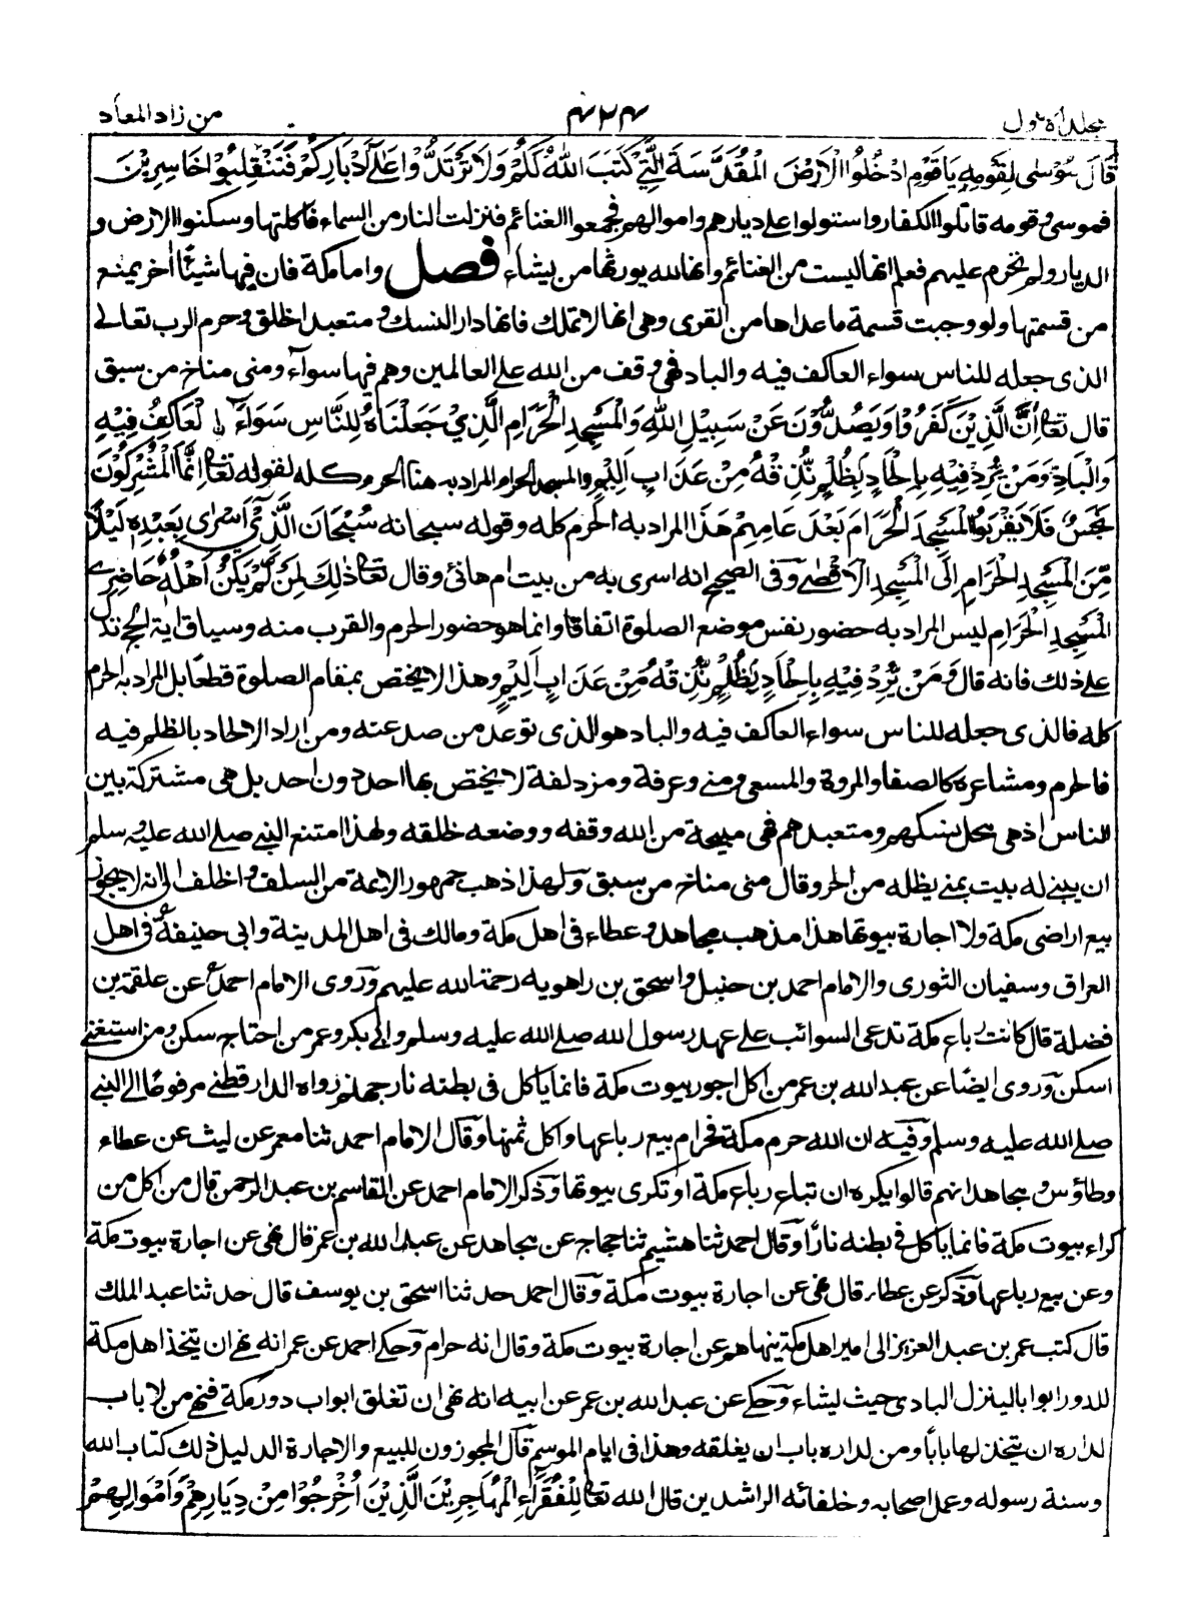 جلد اول
۴۲۴
من زاد المعاد
قَالَ مُوْسٰى لِقَوْمِهٖ يَاقَوْمِ ادْخُلُوا الْاَرْضَ الْمُقَدَّسَةَ الَّتِيْ كَتَبَ اللّٰهُ لَكُمْ وَلَا تَرْتَدُّوْا عَلٰٓى اَدْبَارِكُمْ فَتَنْقَلِبُوْا خَاسِرِيْنَ
فموسى وقومه قاتلوا الكفار واستولوا على ديارهم واموالهم فجمعوا الغنائم فنزلت النار من السماء فاكلتها وسكنوا الارض و
الديار ولم تحرم عليهم فعلم انها ليست من الغنائم وانها لله يورثها من يشاء فصل واما مكة فان فيها شيئًا اخر يمنع
من قسمتها ولو وجبت قسمة ما عداها من القرى وهى انها لا تملك فانها دار النسك ومتعبد الخلق وحرم الرب تعالى
الذى جعله للناس سواء العاكف فيه والباد فهى وقف من الله على العالمين وهم فيها سوآء ومنى مناخ من سبق
قال تعالى اِنَّ الَّذِيْنَ كَفَرُوْا وَيَصُدُّوْنَ عَنْ سَبِيْلِ اللّٰهِ وَالْمَسْجِدِ الْحَرَامِ الَّذِيْ جَعَلْنَاهُ لِلنَّاسِ سَوَآءَ اِ لْعَاكِفُ فِيْهِ
وَالْبَادِ وَمَنْ يُّرِدْ فِيْهِ بِاِلْحَادٍ بِظُلْمٍ نُّذِقْهُ مِنْ عَذَابٍ اَلِيْمٍ والمسجد الحرام المراد به هنا الحرم كله لقوله تعالى اِنَّمَا الْمُشْرِكُوْنَ
نَجَسٌ فَلَا يَقْرَبُوا الْمَسْجِدَ الْحَرَامَ بَعْدَ عَامِهِمْ هٰذَا المراد به الحرم كله وقوله سبحانه سُبْحَانَ الَّذِيْٓ اَسْرٰى بِعَبْدِهٖ لَيْلًا
مِّنَ الْمَسْجِدِ الْحَرَامِ اِلَى الْمَسْجِدِ الْاَقْصٰى وفى الصحيح انه اسرى به من بيت ام هانئ وقال تعالى ذٰلِكَ لِمَنْ لَّمْ يَكُنْ اَهْلُهٗ حَاضِرِى
الْمَسْجِدِ الْحَرَامِ ليس المراد به حضور نفس موضع الصلوة اتفاقا وانما هو حضور الحرم والقرب منه وسياق اية الحج تدل
على ذلك فانه قال وَمَنْ يُّرِدْ فِيْهِ بِاِلْحَادٍ بِظُلْمٍ نُّذِقْهُ مِنْ عَذَابٍ اَلِيْمٍ وهذا لا يختص بمقام الصلوة قطعًا بل المراد به الحرم
كله فالذى جعله للناس سواء العاكف فيه والباد هو الذى توعد من صد عنه ومن اراد الالحاد بالظلم فيه
فالحرم ومشاعره كالصفا والمروة والمسعى ومنى وعرفة ومزدلفة لا يختص بها احد دون احد بل هى مشتركة بين
الناس اذ هى محل نسكهم ومتعبدهم فهى مسجد من الله وقفه ووضعه خلقه ولهذا امتنع النبى صلى الله عليه وسلم
ان يبنى له بيت بمنى يظله من الحر وقال منى مناخ من سبق ولهذا ذهب جمهور الائمة من السلف والخلف الى انه لا يجوز
بيع اراضى مكة ولا اجارة بيوتها هذا مذهب مجاهد وعطاء فى اهل مكة ومالك فى اهل المدينة وابى حنيفة فى اهل
العراق وسفيان الثورى والامام احمد بن حنبل واسحق بن راهويه رحمة الله عليهم وروى الامام احمد عن علقمة بن
فضلة قال كانت رباع مكة تدعى السوائب على عهد رسول الله صلى الله عليه وسلم وابى بكر وعمر من احتاج سكن ومن استغنى
اسكن وروى ايضًا عن عبد الله بن عمر من اكل اجور بيوت مكة فانما ياكل فى بطنه نار جهنم رواه الدارقطنى مرفوعًا الى النبى
صلى الله عليه وسلم وفيه ان الله حرم مكة فحرام بيع رباعها واكل ثمنها وقال الامام احمد ثنا معمر عن ليث عن عطاء
وطاؤس ومجاهد انهم قالوا يكره ان تباع رباع مكة او تكرى بيوتها وذكر الامام احمد عن القاسم بن عبد الرحمن قال من اكل من
كراء بيوت مكة فانما ياكل فى بطنه نارًا وقال احمد ثنا هشيم ثنا حجاج عن مجاهد عن عبد الله بن عمر قال نهى عن اجارة بيوت مكة
وعن بيع رباعها وذكر عن عطاء قال نهى عن اجارة بيوت مكة وقال احمد حدثنا اسحق بن يوسف قال حدثنا عبد الملك
قال كتب عمر بن عبد العزيز الى امير اهل مكة ينهاهم عن اجارة بيوت مكة وقال انه حرام وحكى احمد عن عمر انه نهى ان يتخذ اهل مكة
للدور ابوابا لينزل البادى حيث يشاء وحكى عن عبد الله بن عمر عن ابيه انه نهى ان تغلق ابواب دور مكة فنهى من لا باب
لداره ان يتخذ لها بابًا ومن لداره باب ان يغلقه وهذا فى ايام الموسم قال المجوزون للبيع والاجارة الدليل ذلك كتاب الله
وسنة رسوله وعمل اصحابه وخلفائه الراشدين قال الله تعالى لِلْفُقَرَآءِ الْمُهَاجِرِيْنَ الَّذِيْنَ اُخْرِجُوْا مِنْ دِيَارِهِمْ وَاَمْوَالِهِمْ